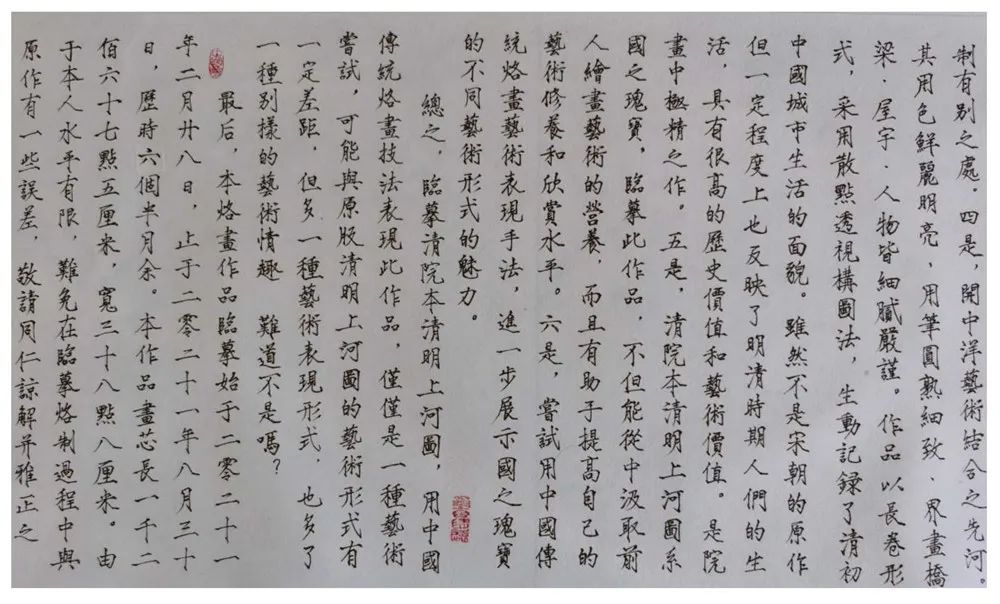 制有别之處。四是，開中洋藝術結合之先河。
其用色鮮麗明亮，用筆圓熟細致、界畫橋
梁·屋宇·人物皆細膩嚴謹。作品以長卷形
式，采用散點透視構圖法，生動記録了清初
中國城市生活的面貌。雖然不是宋朝的原作
但一定程度上也反映了明清時期人們的生
活，具有很高的歷史價值和藝術價值。是院
畫中極精之作。五是，清院本清明上河圖系
國之瑰寶，臨摹此作品，不但能從中汲取前
人繪畫藝術的營養，而且有助于提高自己的
藝術修養和欣賞水平。六是，嘗試用中國傳
統烙畫藝術表現手法，進一步展示國之瑰寶
的不同藝術形式的魅力。
總之，臨摹清院本清明上河圖，用中國
傳統烙畫技法表現此作品，僅僅是一種藝術
嘗試，可能與原版清明上河圖的藝術形式有
一定差距，但多一種藝術表現形式，也多了
一種别樣的藝術情趣 難道不是嗎？
最后，本烙畫作品臨摹始于二零二十一
年二月廿八日，止于二零二十一年八月三十
日，歷時六個半月余。本作品畫芯長一千二
佰六十七點五厘米，寬三十八點八厘米。由
于本人水平有限，難免在臨摹烙制過程中與
原作有一些誤差，敬請同仁諒解并雅正之